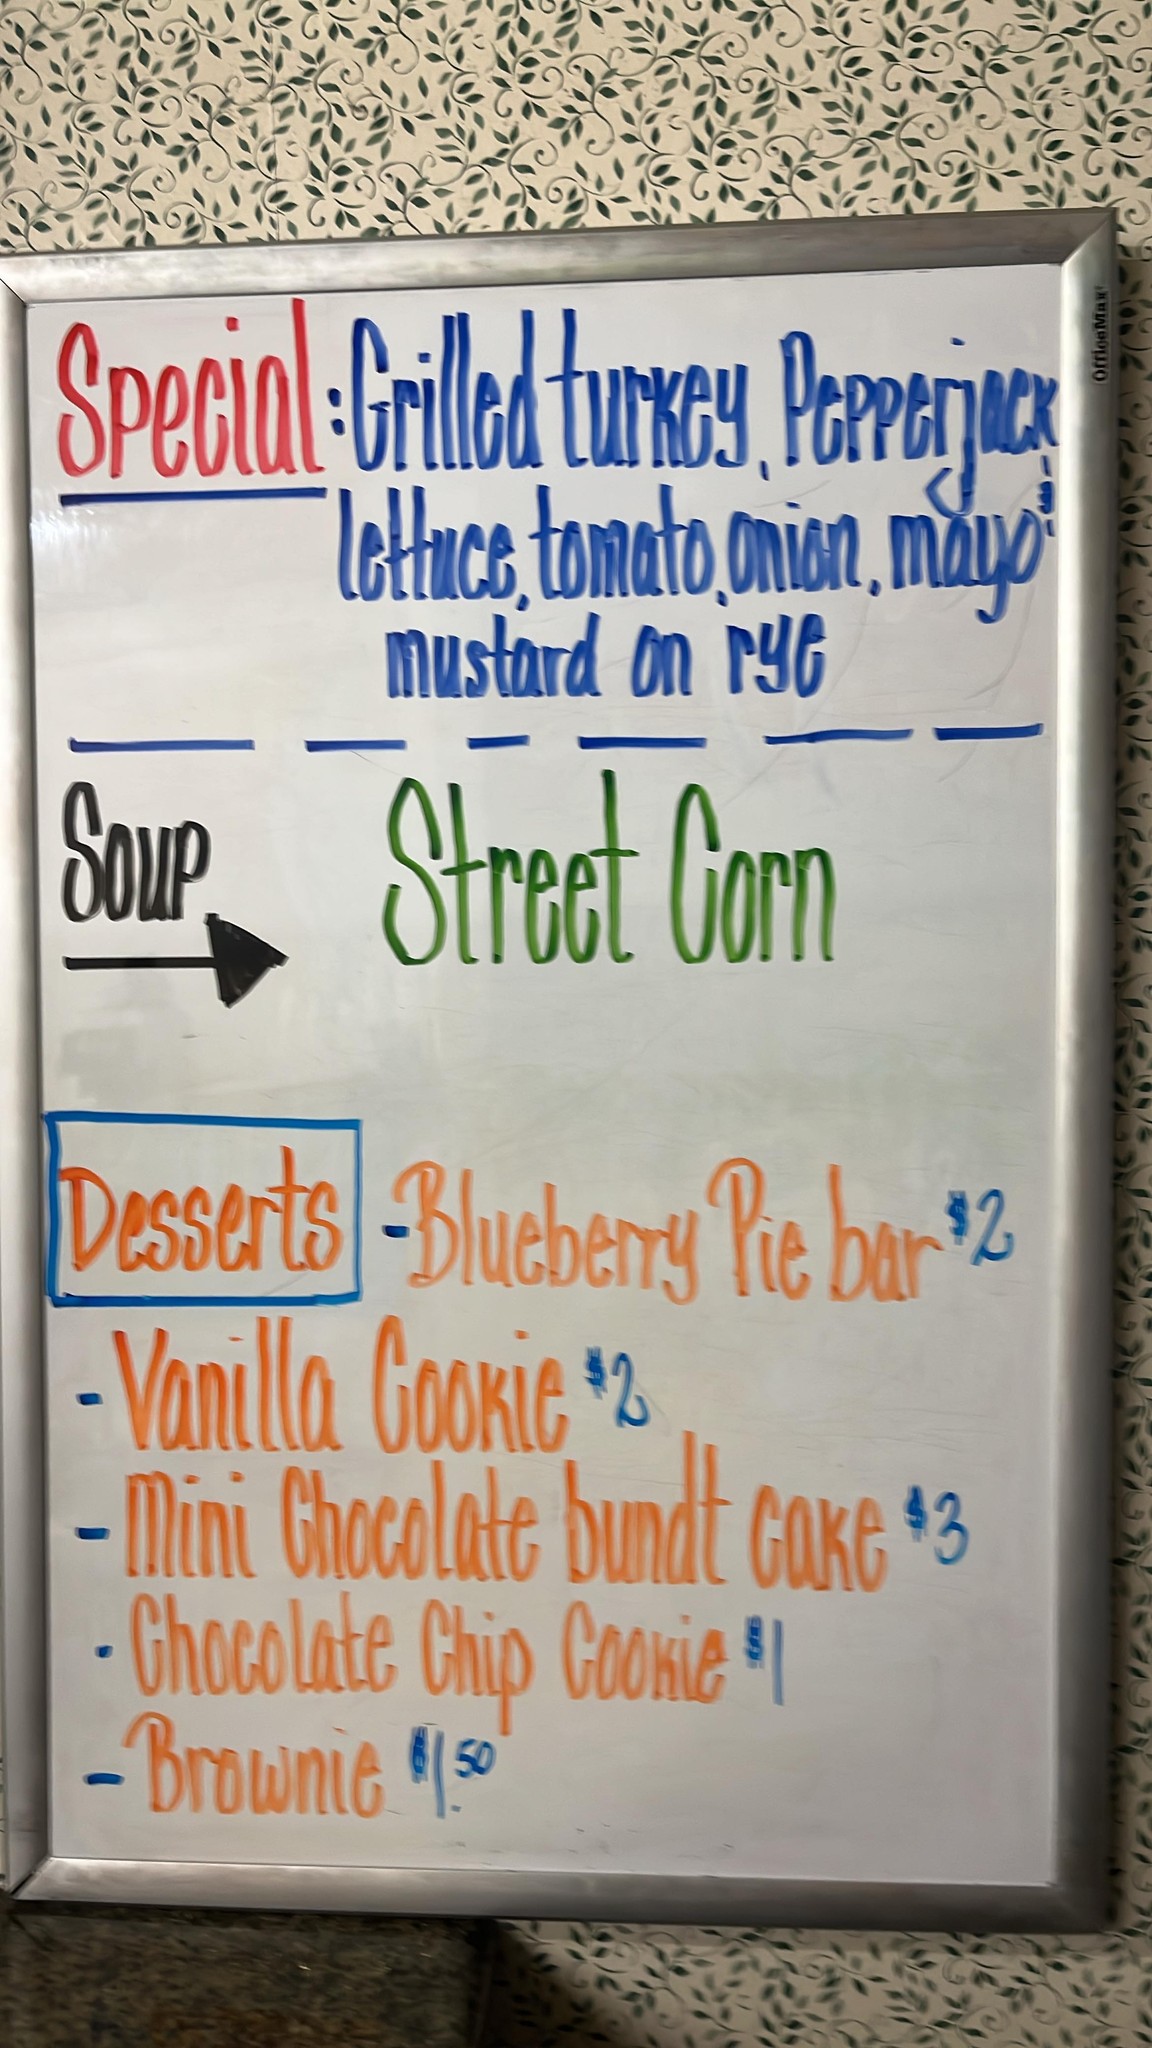 Special: Grilled turkey, Pepperjack
lettuce, tomato, onion, mayo &
mustard on rye
Soup Street Corn
Desserts - Blueberry Pie bar $2
- Vanilla Cookie $2
- Mini Chocolate bundt cake $3
- Chocolate Chip Cookie $1
- Brownie $1.50
OfficeMax